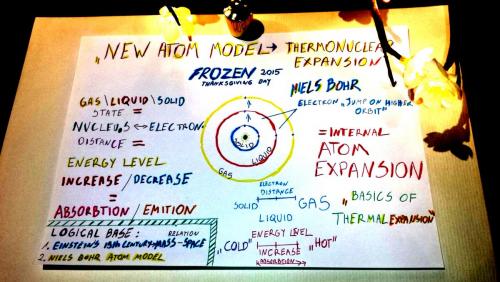 „NEW ATOM MODEL → THERMONUCLEAR
EXPANSION
FROZEN 2015
THANKSGIVING DAY
NIELS BOHR
ELECTRON „JUMP ON HIGHER
ORBIT"
GAS\LIQUID\SOLID
STATE =
NUCLEUS ↔ ELECTRON
DISTANCE =
ENERGY LEVEL
INCREASE/DECREASE
=
ABSORBTION/EMITION
SOLID
LIQUID
GAS
= INTERNAL
ATOM
EXPANSION
„BASICS OF
THERMAL EXPANSION"
ELECTRON
DISTANCE
SOLID GAS
LIQUID
ENERGY LEVEL
„COLD" „HOT"
INCREASE
ABSORBTION
LOGICAL BASE: RELATION
1. EINSTEIN'S 19TH CENTURY MASS-SPACE
2. NIELS BOHR ATOM MODEL